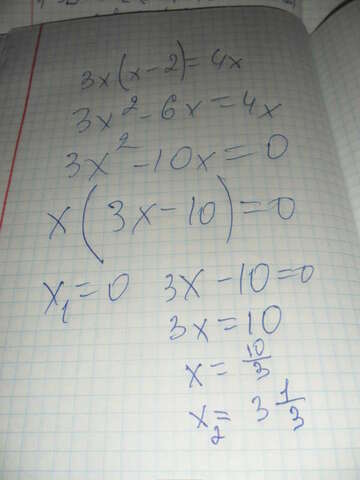 3x(x-2)=4x
3x²-6x=4x
3x²-10x=0
x(3x-10)=0
x₁=0 3x-10=0
3x=10
x=10/3
x₂=3 1/3